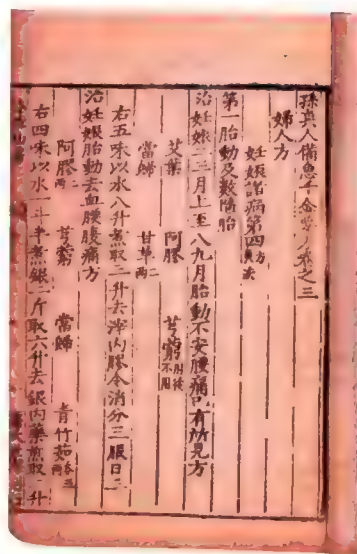 孫真人備急千金要方卷之三
婦人方
妊娠諸病第四
第一胎動及數墮胎
治妊娠二三月上至八九月胎動不安腰痛已有所見方
艾葉 阿膠 芎藭
當歸 甘草
右五味以水八升煮取三升去滓內膠令消分三服日三
治妊娠胎動去血腰腹痛方
阿膠二兩 芎藭 當歸 青竹茹
右四味以水一斗半煮銀二斤取六升去銀內藥煎取二升